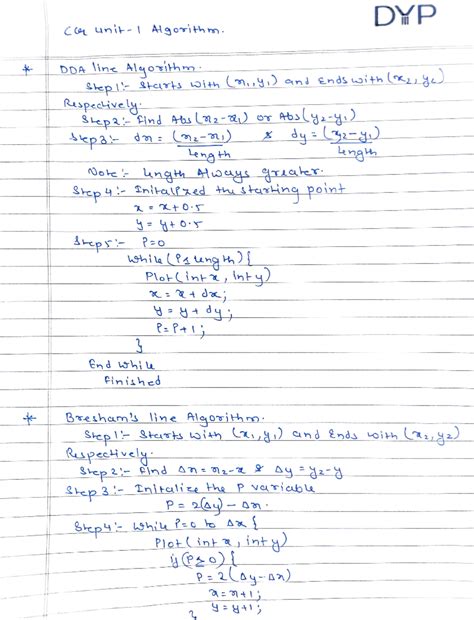 DYP
CG Unit-1 Algorithm.
* DDA line Algorithm.
Step 1:- Starts with (x1, y1) and Ends with (x2, y2)
Respectively.
Step 2:- find Abs (x2-x1) or Abs (y2-y1)
Step 3:- dx = (x2-x1) / Length & dy = (y2-y1) / Length
Note:- Length Always greater.
Step 4:- Initalized the starting point
x = x+0.5
y = y+0.5
Step 5:- P=0
While (P≤Length) {
Plot (int x, int y)
x = x + dx;
y = y + dy;
P = P+1;
}
End While
Finished
* Bresham's line Algorithm.
Step 1:- Starts with (x1, y1) and Ends with (x2, y2)
Respectively.
Step 2:- Find Δx = x2-x & Δy = y2-y
Step 3:- Initalize the P variable
P = 2(Δy) - Δx.
Step 4:- While P=0 to Δx {
Plot (int x, int y)
if (P≥0) {
P = 2(Δy-Δx)
x = x+1;
y = y+1;
}